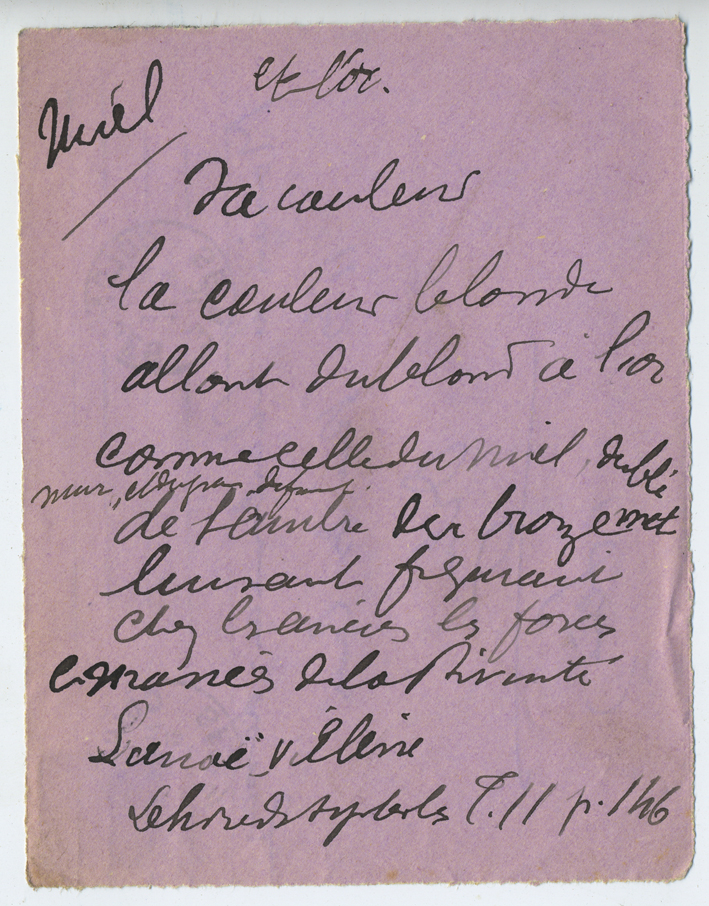 et l'or.
Miel
Sa couleur
la couleur blonde
allant du blond à l'or
comme celle du miel, du blé
mur, et du pain,
de l'ambre du bronze met
luisant figurait
chez les anciens les forces
émanées de la Divinité
Lanoë Villène
Le livre des symboles T. II p. 146